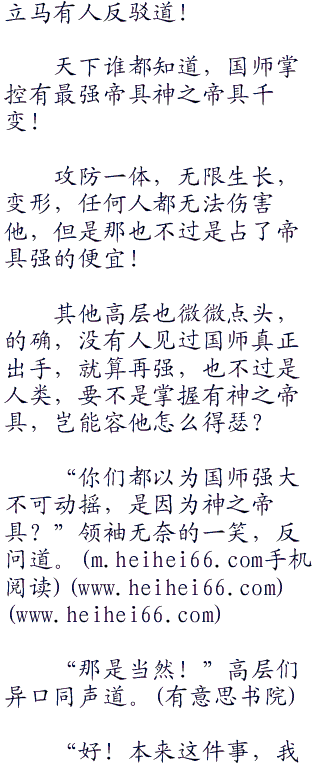 立马有人反驳道！
天下谁都知道，国师掌
控有最强帝具神之帝具千
变！
攻防一体，无限生长，
变形，任何人都无法伤害
他，但是那也不过是占了帝
具强的便宜！
其他高层也微微点头，
的确，没有人见过国师真正
出手，就算再强，也不过是
人类，要不是掌握有神之帝
具，岂能容他怎么得瑟？
“你们都以为国师强大
不可动摇，是因为神之帝
具？”领袖无奈的一笑，反
问道。(m.heihei66.com手机
阅读)(www.heihei66.com)
(www.heihei66.com)
“那是当然！”高层们
异口同声道。(有意思书院)
“好！本来这件事，我